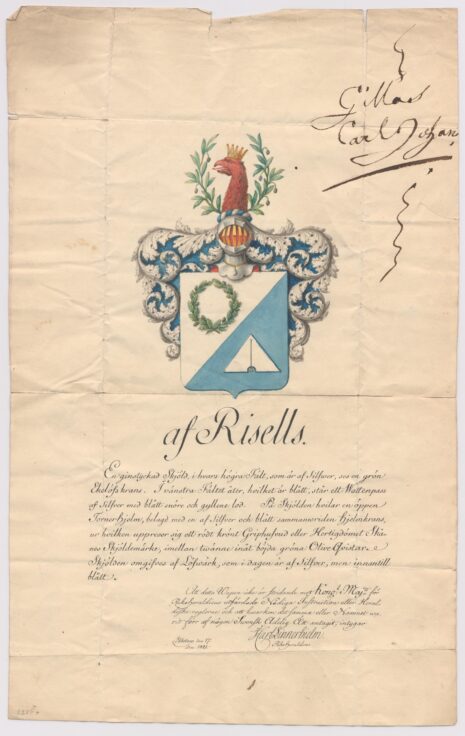 Gillas
Carl Johan
af Risells.
En ginstyckad Skjöld, i hvars högra Fält, som är af Silfver, ses en grön
Eklöfskrans. I vänstra Fältet åter, hvilket är blått, står ett Wattenpass
af Silfver med blått snöre och gyllene lod. På Skjölden hvilar en öppen
Tornerhjelm, belagd med en af Silfver och blått sammanvriden Hjelmkrans,
ur hvilken uppreser sig ett rödt krönt Griphufvud eller Hertigdömet Skå-
nes Skjöldemärke, imellan twänne inåt böjda gröna Olive-Qvistar.
Skjölden omgifves af Löfvärk, som i dagen är af Silfver, men innantill
blått.
Att detta Wapen icke är stridande mot Kongl. Maj:ts för
Riks-Heraldicus utfärdade Nådiga Instruction eller Heral-
diska reglorne och att hvarken det samma eller Namnet va-
rit förr af någon Svensk Adelig Ätt antagit, intygar
den 17
Riksheraldicus